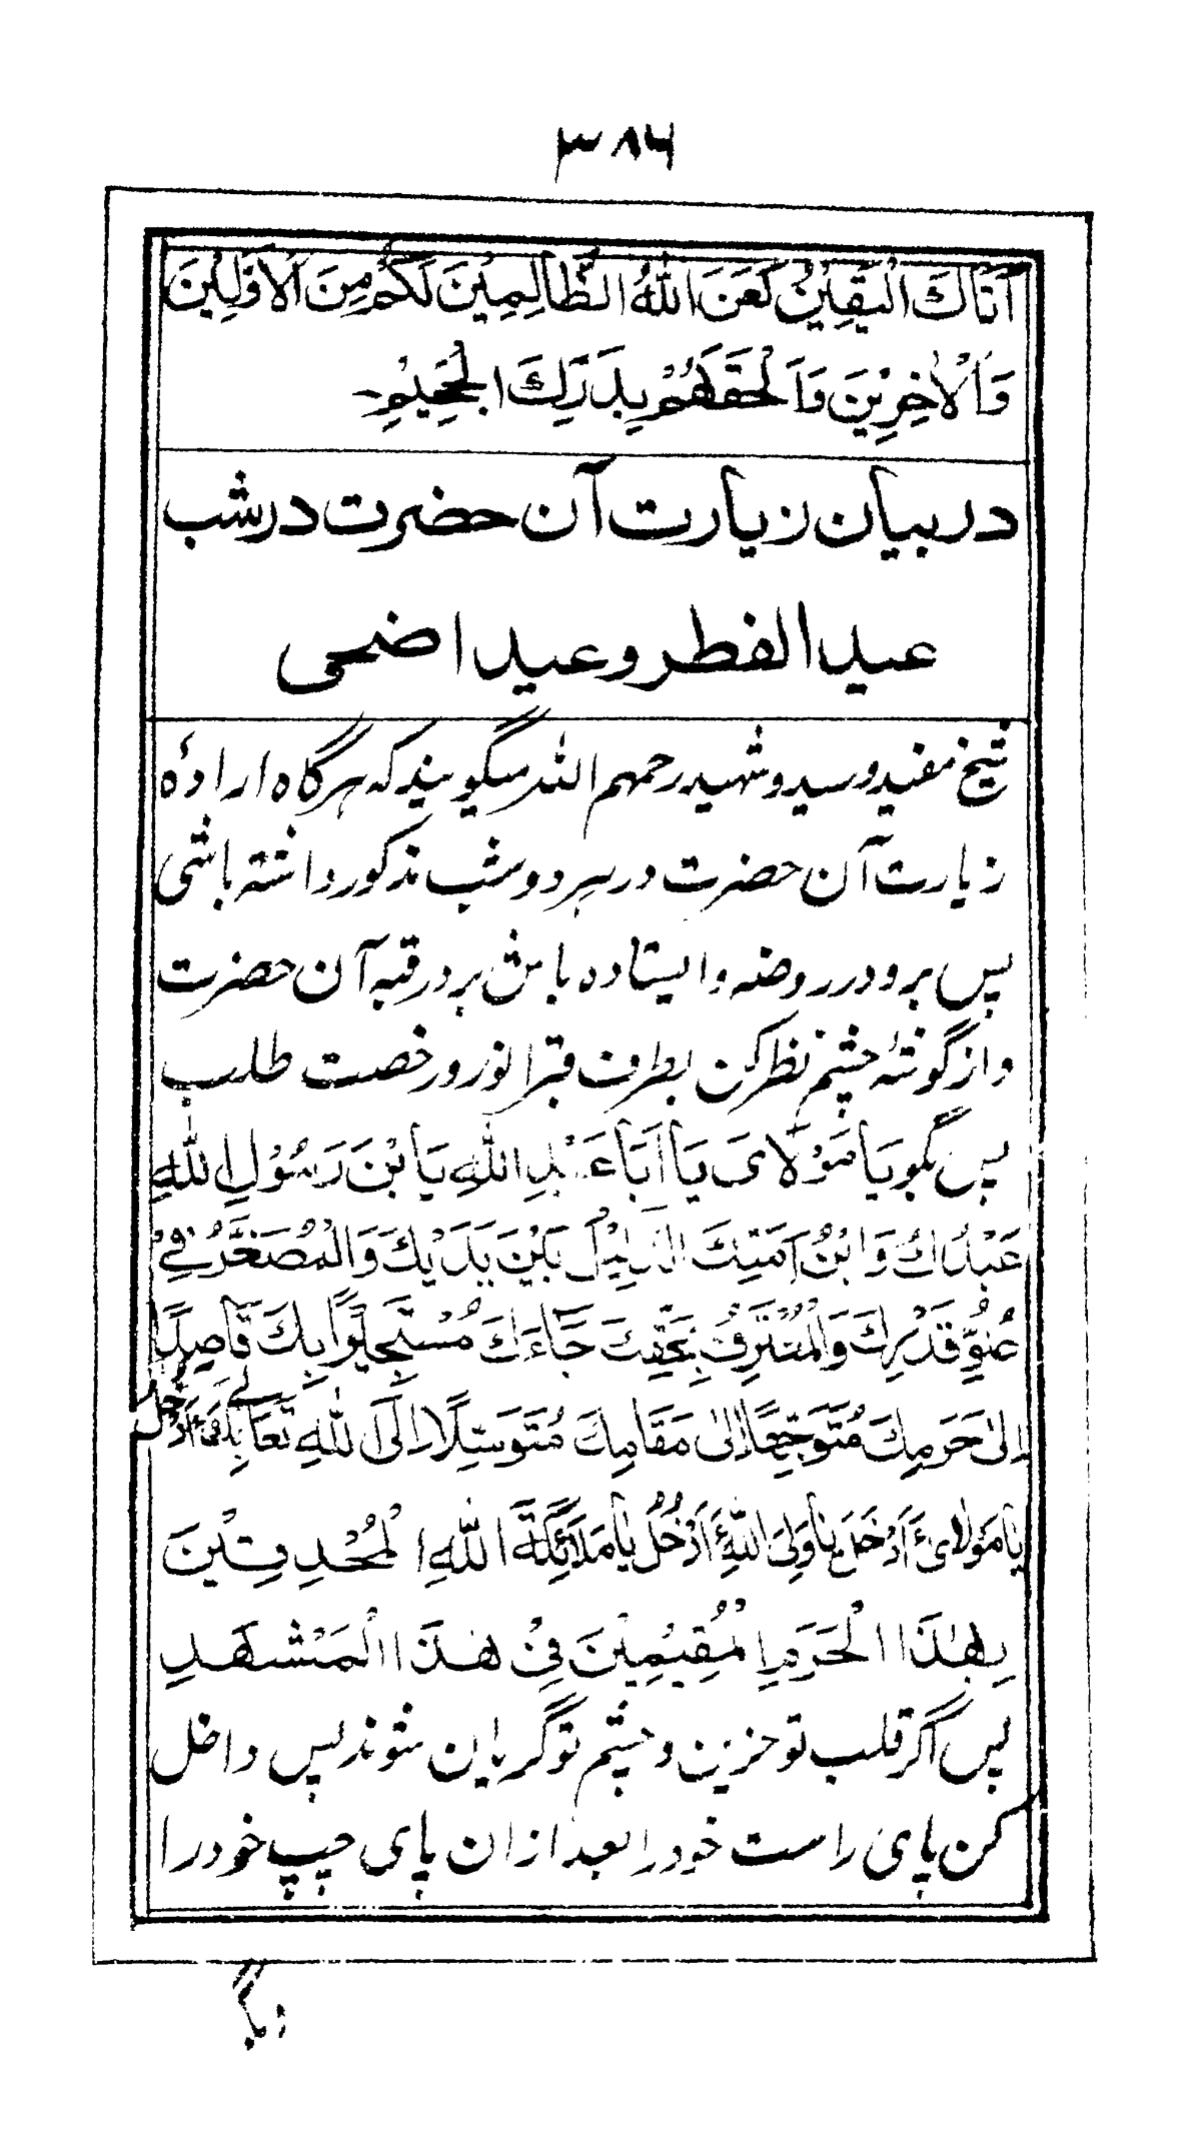 ۳۸۶
اَتَاكَ الْيَقِيْنُ لَعَنَ اللّٰهُ الظَّالِمِيْنَ لَكُمْ مِنَ الْاَوَّلِيْنَ
وَالْاٰخِرِيْنَ وَاَلْحَقَهُمْ بِدَرَكِ الْجَحِيْمِ
در بیان زیارت آن حضرت در شب
عید الفطر و عید اضحی
شیخ مفید و سید و شهید رحمهم الله میگویند که هرگاه ارادهٔ
زیارت آن حضرت در هر دو شب مذکور داشته باشی
پس برو در روضه و ایستاده باش بر در قبه آن حضرت
و از گوشهٔ چشم نظر کن بطرف قبر انور و رخصت طلب
پس بگو يَا مَوْلَايَ يَا اَبَا عَبْدِ اللّٰهِ يَا بْنَ رَسُوْلِ اللّٰهِ
عَبْدُكَ وَابْنُ اَمَتِكَ الذَّلِيْلُ بَيْنَ يَدَيْكَ وَالْمُصَغَّرُ فِيْ
عُلُوِّ قَدْرِكَ وَالْمُعْتَرِفُ بِحَقِّكَ جَاءَكَ مُسْتَجِيْرًا بِكَ قَاصِدًا
اِلٰى حَرَمِكَ مُتَوَجِّهًا اِلٰى مَقَامِكَ مُتَوَسِّلًا اِلَى اللّٰهِ تَعَالٰى بِكَ ءَاَدْخُلُ
يَا مَوْلَايَ ءَاَدْخُلُ يَا وَلِيَّ اللّٰهِ ءَاَدْخُلُ يَا مَلٰٓئِكَةَ اللّٰهِ الْمُحْدِقِيْنَ
بِهٰذَا الْحَرَمِ الْمُقِيْمِيْنَ فِيْ هٰذَا الْمَشْهَدِ
پس اگر قلب تو حزین و چشم تو گریان شوند پس داخل
کن پای راست خود را بعد ازان پای چپ خود را